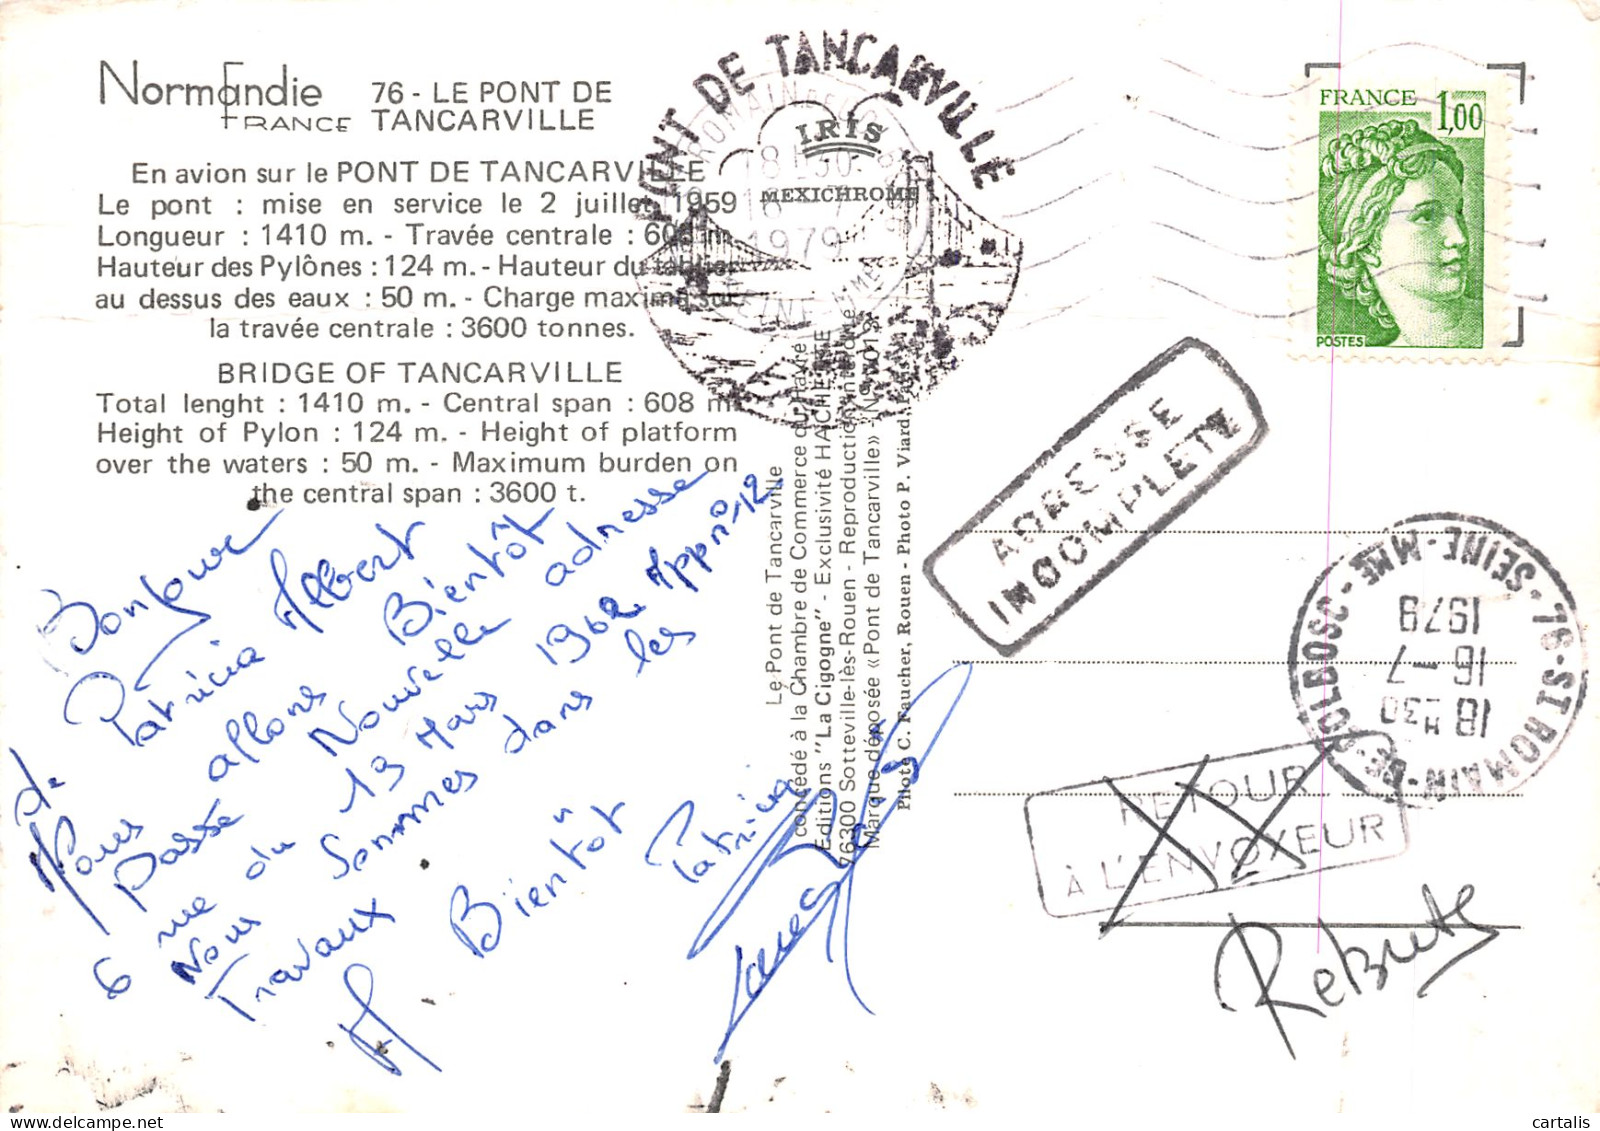 Normandie
FRANCE
76 - LE PONT DE
TANCARVILLE
En avion sur le PONT DE TANCARVILLE
Le pont : mise en service le 2 juillet 1959
Longueur : 1410 m. - Travée centrale : 608 m.
Hauteur des Pylônes : 124 m. - Hauteur du tablier
au dessus des eaux : 50 m. - Charge maxima sur
la travée centrale : 3600 tonnes.
BRIDGE OF TANCARVILLE
Total lenght : 1410 m. - Central span : 608 m.
Height of Pylon : 124 m. - Height of platform
over the waters : 50 m. - Maximum burden on
the central span : 3600 t.
Bonjour
de Patricia Albert
Nous allons Bientôt
passé Nouvelle adresse
6 rue du 19 Mars 1962 Appr 12
Nous Sommes dans les
Travaux
A Bientôt Patricia
PONT DE TANCARVILLE
IRIS
MEXICHROME
18 H30
16 - 7
1979
Le Pont de Tancarville
concédé à la Chambre de Commerce du Havre
Editions "La Cigogne" - Exclusivité HACHETTE
76300 Sotteville-lès-Rouen - Reproduction interdite
Marque déposée «Pont de Tancarville»
Pilote C. Faucher, Rouen - Photo P. Viard, Paris
FRANCE 1,00
POSTES
ADRESSE
INCOMPLETE
76 - ST ROMAIN - DE - COLBOSC - SEINE - MME
18 H30
16 - 7
1979
RETOUR
À L'ENVOYEUR
Rebuts
cartalis